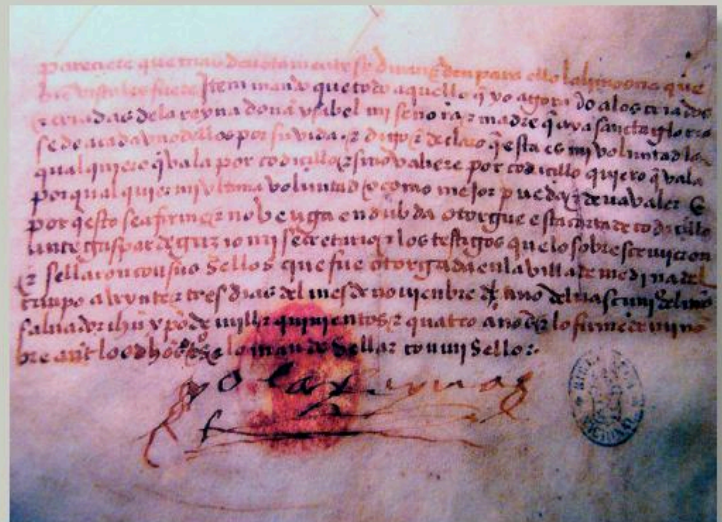 pareciere que mas devotamente se diran & den para ello la limosna que
bien visto les fuere Iten mando que todo aquello q̃ yo agora do a los criados
& criadas dela reyna doña ysabel mi señora & madre q̃ aya sancta gloria
se do a cada vno dellos por su vida. & digo & declaro q̃ esta es mi voluntad la
qual quiero q̃ vala por codicillo & si no valiere por codicillo quiero q̃ vala
por qualquier mi vltima voluntad o como mejor pueda & deua valer E
por q̃ esto sea firme & no venga en dubda otorgue esta carta de codicillo
ante gaspar de grizio mi secretario & los testigos que lo sobrescriuieron
& sellaron con sus sellos que fue otorgada en la villa de medina del
campo a veynte & tres dias del mes de nouienbre del año del nascimi del nro
saluador ihũ xp̃o de mill & quinientos & quatro años & lo firme de mi no
bre ante los dhos & lo mande sellar con mi sello.
yo la reyna
BIBLIOTECA NACIONAL